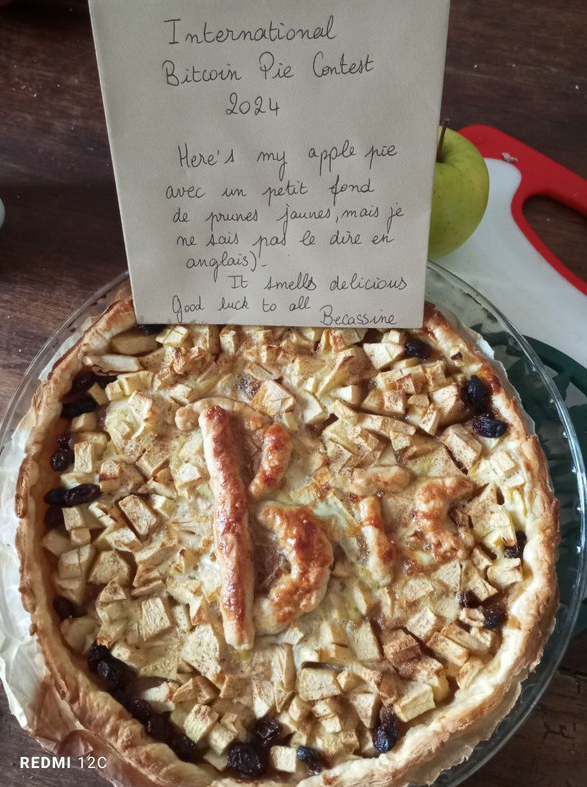 International
Bitcoin Pie Contest
2024
Here's my apple pie
avec un petit fond
de prunes jaunes, mais je
ne sais pas le dire en
anglais).
It smells delicious
Good luck to all Becassine
REDMI 12C